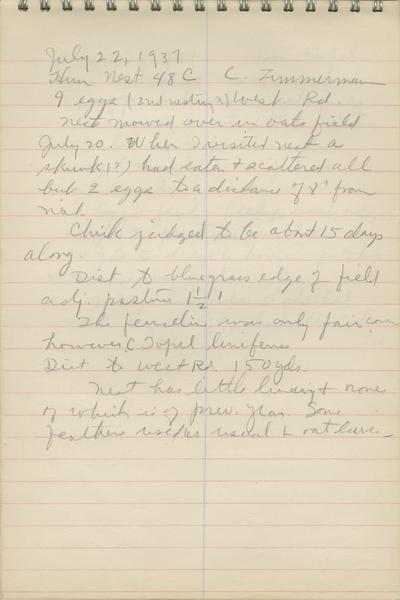 July 22, 1937
Hun Nest 48 C C. Zimmerman
9 eggs (2nd nesting?) West Rd.
Nest mowed over in oats field
July 20. When I visited nest a
skunk(?) had eaten + scattered all
but 2 eggs to a distance of 8' from
nest.
Chick judged to be about 15 days
along.
Dist to bluegrass edge of field
adj. pasture 1 1/2'
The fenceline was only fair cover
however. C.
Dist to West Rd. 150 yds.
Nest has little lining + none
of which is of prev. year. Some
feathers used as usual + oat leave_